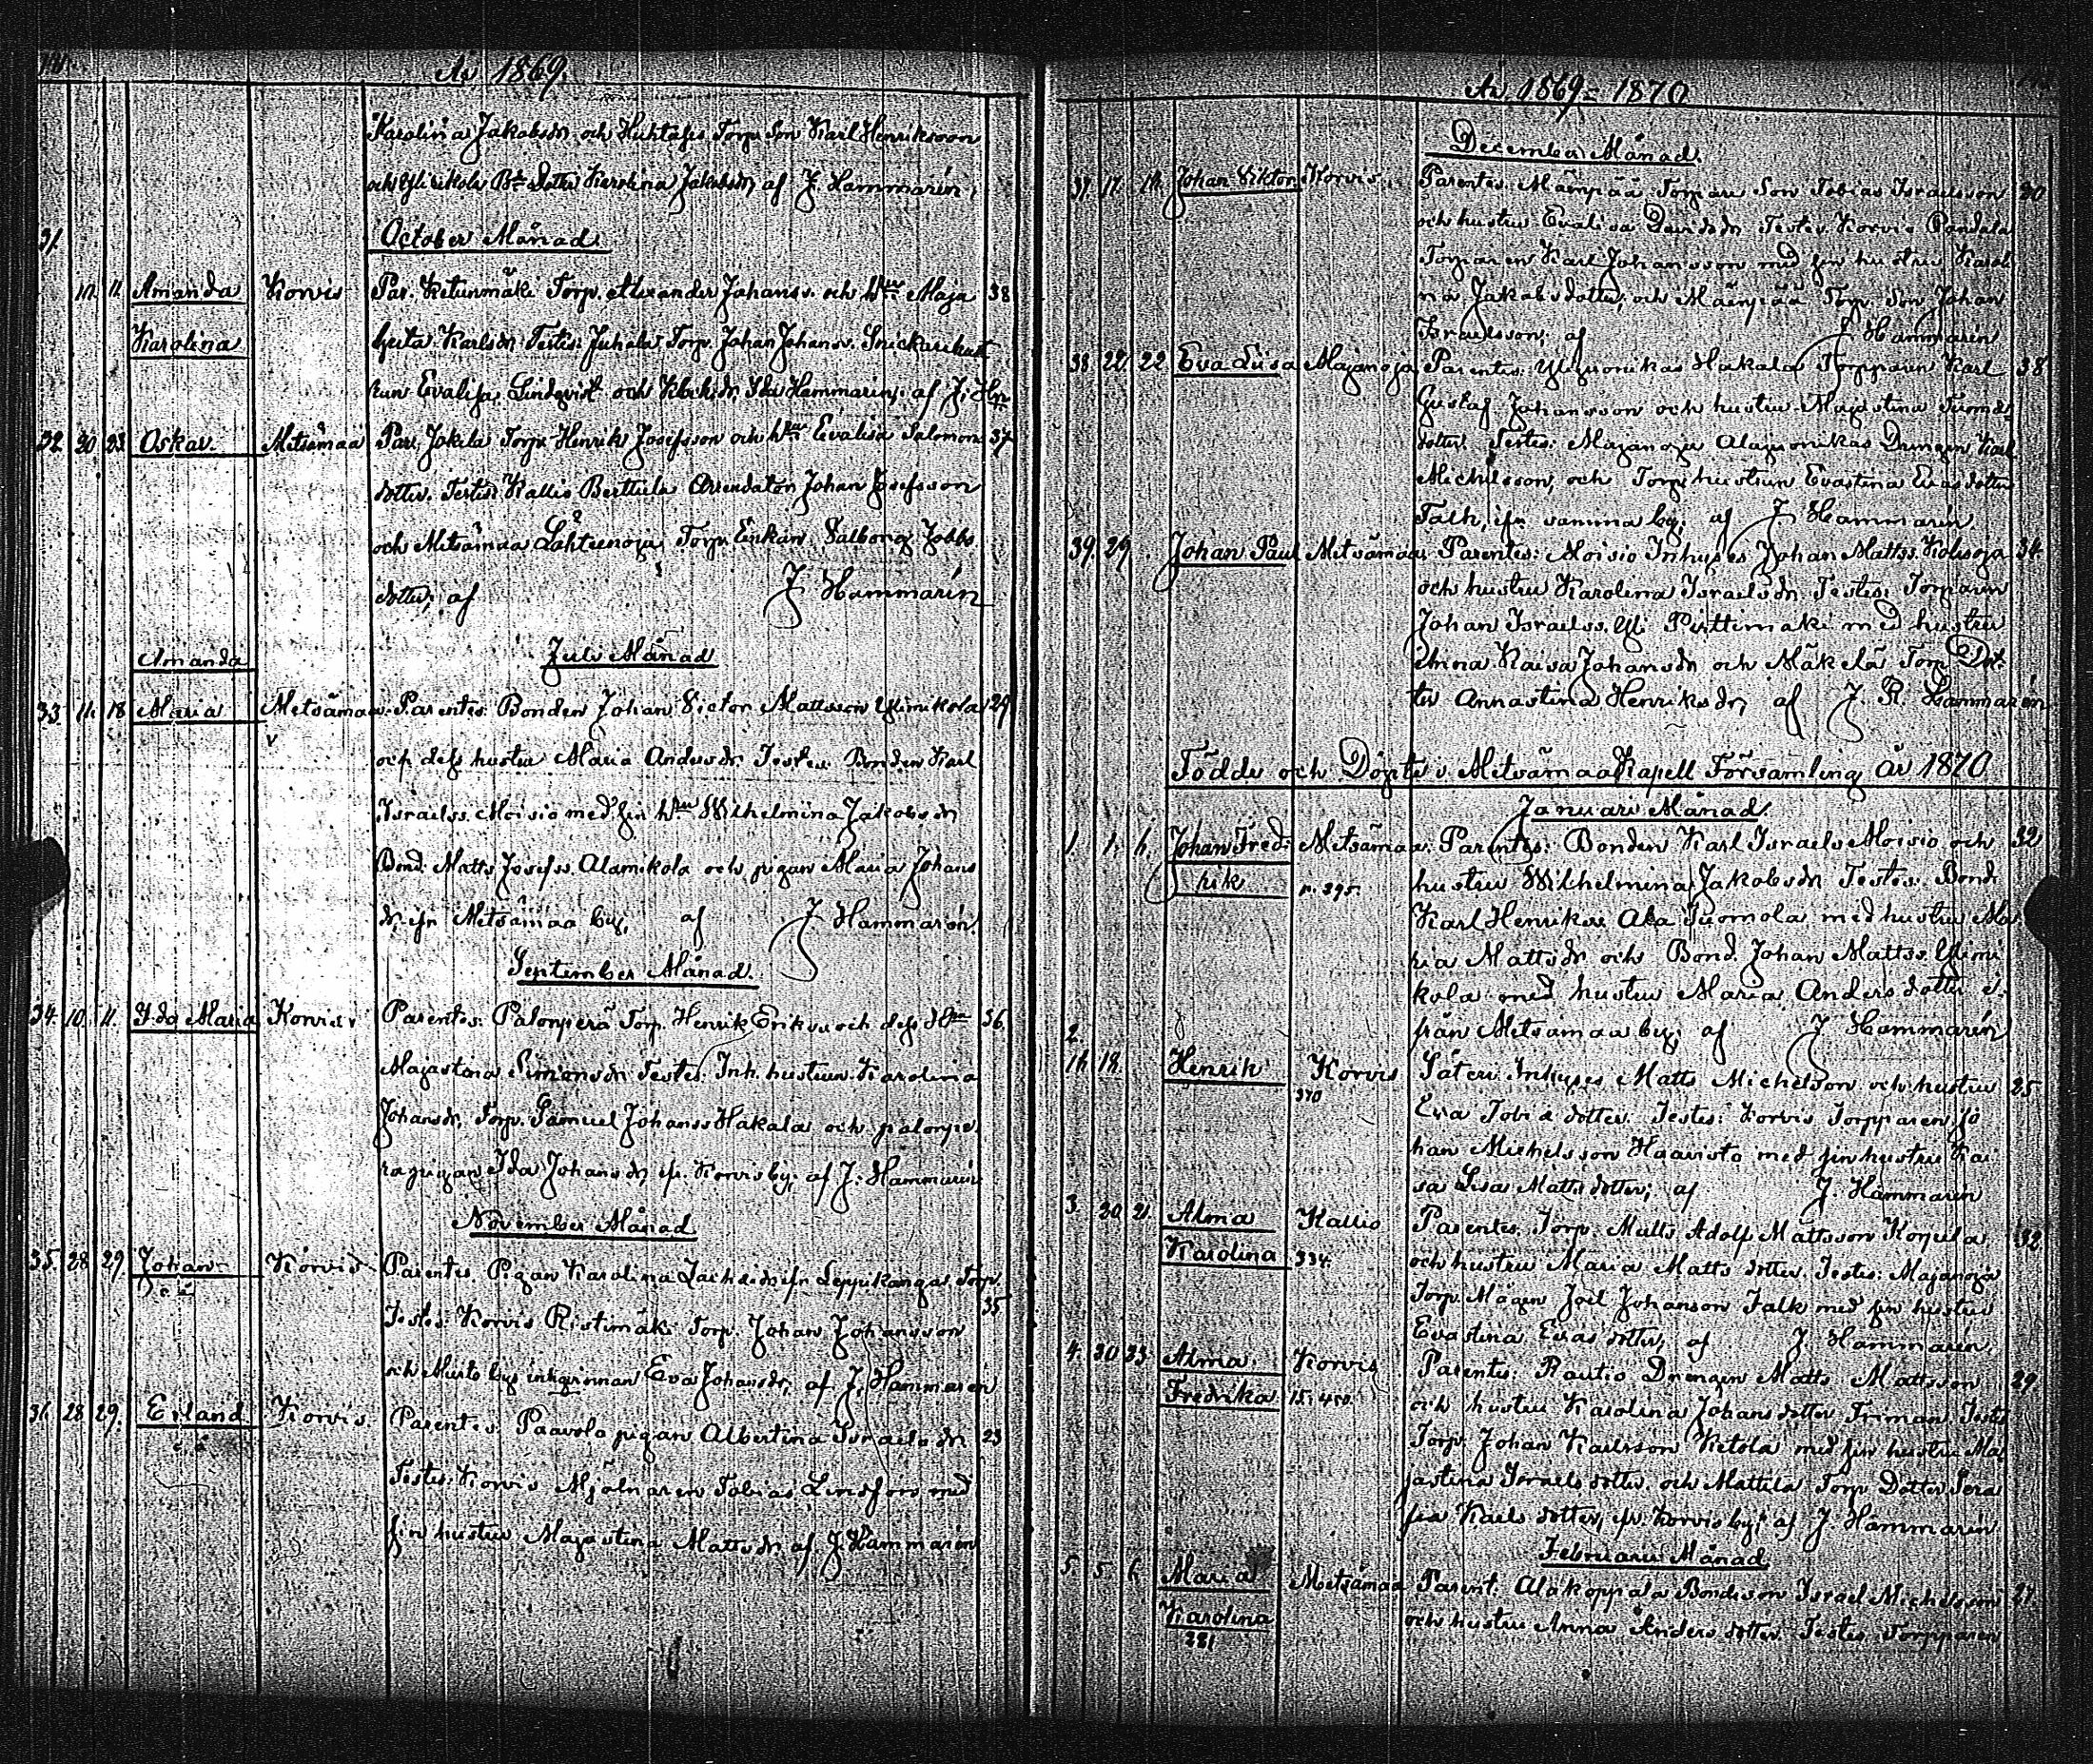 År 1869.
Karolina Jakobsdr och Huhtafss Torp. Son Karl Henriksson
och Dotter Karolina Jakobsdr, af J. Hammarén,
31.
October Månad.
10. 11. Amanda Korvis Par. Ketunmäki Torp. Alexander Johanss. och Hru Maja 38
Karolina Greta Karlsdr. Testes: Juhala Torp. Johan Johanss.
Evalisa Lindqvist och Ida Hammarén; af J. Hn
32. 20. 23. Oskar. Metsämaa Par. Jakela Torp. Henrik Josefsson och hru Evalisa Salomons 37
dotter. Testes: Kallio Berttula Arrendator Johan Josefsson
och Metsämaa Lähteenoja Torp. Enkan Valborg Jobbs
dotter; af J Hammarén
Juli Månad
Amanda
33. 11. 18 Maria Metsämaa. Parentes: Bonden Johan Victor Mattsson Ylimikola 29
och dess hustru Maria Andersdr. Testes: Bonden Karl
Israelss. Moisio med sin hru Wilhelmina Jakobsdr
Bond. Matts Josefss. Alamikola och pigan Maria Johans
dr, ifr. Metsämaa by; af J Hammarén
September Månad.
34. 10. 11. Ida Maria Korvis Parentes: Palonperä Torp. Henrik Erikss. och dess Hru 36.
Majastina Simonsdr Testes: Inh. hustrun Karolina
Johansdr, Torp. Samuel Johanss Hakala och palonpe
rapigan Ida Johansdr, ifr. Korvis by; af J. Hammarén
November Månad
35. 28 29. Johan Korvis Parentes: Pigan Karolina ifr Leppukangas Torp.
35
Testes: Korvis Ristimäki Torp. Johan Johansson
och Mursto bys Eva Johansdr, af J. Hammarén
36 28 29. Erland Korvis Parentes: Paavola pigan Albertina Israelsdr 23
Testes: Korvis Mjölnaren Tobias Lindfors med
sin hustru Majastina Mattsdr. af J Hammarén
År 1869 = 1870
December Månad.
37. 17. 19. Johan Viktor Korvis. Parentes: Mäenpää Torpare Son Tobias Israelsson 30
och hustru Evalisa Davidsdr Testes: Korvis Pandala
Torparen Karl Johansson med sin hustru Karoli
na Jakobsdotter, och Mäenpää Torp. Son Johan
Israelsson; af J Hammarén
38. 22. 22 Eva Liisa Majanoja Parentes: Ylijuonikas Hakala Torpparen Karl 38
Gustaf Johansson och hustru Majastina Tuomas
dotter. Testes: Majanoja Alajuonikas Drengen Karl
Michelsson, och Torp. hustrun Evastina Evasdotter
Falk, ifr. samma by; af J Hammarén
39. 29. Johan Paul Metsämaa Parentes: Moisio Inhyses Johan Mattss. Kalisoja 34
och hustru Karolina Israelsdr. Testes: Torparen
Johan Israelss. Yli Pirttimäki med hustru
Anna Kaisa Johansdr och Mäkelä Torp Dot-
ter Annastina Henriksdr, af J. R. Hammarén
Födde och Döpte i Metsämaa Kapell Församling År 1870
Januari Månad.
1. 1. 6. Johan Fred- Metsämaa. Parentes: Bonden Karl Israels Moisio och 32
rik p. 395. hustru Wilhelmina Jakobsdr Testes: Bond.
Karl Henrikss Ala Tuomola med hustru Ma
ria Mattsdr och Bond. Johan Mattss. Ylimi
kola med hustru Maria Andersdotter
från Metsämaa by; af J Hammarén
2.
16. 18. Henrik Korvis Säteri Inhyses Matts Michelsson och hustru 25
370 Eva Tobiadotter. Testes: Korvis Torpparen Jo
han Michelsson Haavisto med sin hustru Kai
sa Lisa Mattsdotter; af J. Hammarén
3. 20. 21. Alma Kallio Parentes: Torp. Matts Adolf Mattsson Kopila 32
Karolina 334. och hustru Maria Mattsdotter. Testes: Majanoja
Torp. Mågen Joel Johanson Falk med sin hustru
Evastina Evasdotter; af J. Hammarén.
4. 30 Alma Korvis Parentes: Rautio Drengen Matts Mattsson 29
Fredrika och hustru Karolina Johansdotter Friman Testes
Torp. Johan Karlsson Ketola med sin hustru Ma
jastina Israelsdotter och Mattila Torp Dotter Sera
fia Karlsdotter, ifr. Korvis by; af J. Hammarén
Februarii Månad
5. 5. 6. Maria Metsämaa Parent: Alakoppala Bondeson Israel Michelsson 27
Karolina och hustru Anna Andersdotter Testes: Torpparen
281